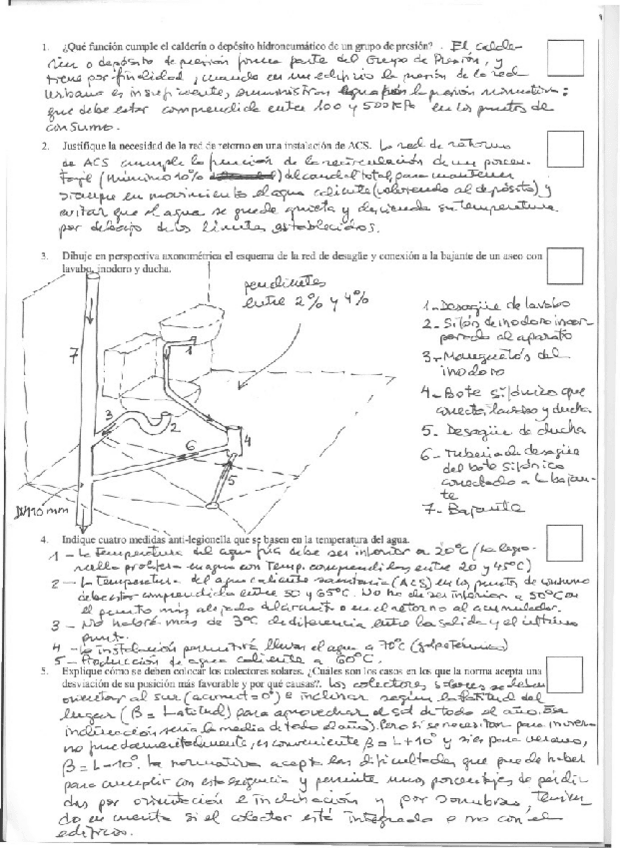 1. ¿Qué función cumple el calderín o depósito hidroneumático de un grupo de presión? . El calde-
rín o depósito de presión forma parte del Grupo de Presión, y
tiene por finalidad, cuando en un edificio la presión de la red
urbana es insuficiente, suministrar la presión normativa:
que debe estar comprendida entre 100 y 500 KPa en los puntos de
consumo.
2. Justifique la necesidad de la red de retorno en una instalación de ACS. La red de retorno
de ACS cumple la función de la recirculación de un porcen-
taje (mínimo 10% del caudal total, para mantener
siempre en movimiento el agua caliente (volviendo al depósito) y
evitar que el agua se quede quieta y descienda su temperatura
por debajo de los límites establecidos.
3. Dibuje en perspectiva axonométrica el esquema de la red de desagüe y conexión a la bajante de un aseo con
lavabo, inodoro y ducha.
pendientes
entre 2% y 4%
1- Desagüe de lavabo
2- Sifón de inodoro incor-
porado al aparato
3- Manguetón del
inodoro
4- Bote sifónico que
conecta lavabo y ducha
5- Desagüe de ducha
6- Tubería de desagüe
del bote sifónico
conectado a la bajan-
te
7- Bajante
1
2
3
4
5
6
7
110 mm
4. Indique cuatro medidas anti-legionella que se basen en la temperatura del agua.
1 - La temperatura del agua fría debe ser inferior a 20°C (La legio-
nella prolifera en agua con temp. comprendidas entre 20 y 45°C)
2 - La temperatura del agua caliente sanitaria (ACS) en los puntos de consumo
debe estar comprendida entre 50 y 65°C. No ha de ser inferior a 50°C en
el punto más alejado del circuito o en el retorno al acumulador.
3 - No habrá más de 3°C de diferencia entre la salida y el último
punto.
4 - La instalación permitirá llevar el agua a 70°C (golpe térmico)
5 - Producción de agua caliente a 60°C.
5. Explique cómo se deben colocar los colectores solares. ¿Cuáles son los casos en los que la norma acepta una
desviación de su posición más favorable y por qué causas?. Los colectores solares se deben
orientar al sur (acimut=0°) e inclinar según la latitud del
lugar (β = Latitud) para aprovechar el sol de todo el año. Esa
inclinación sería la media de todo el año). Pero si se necesitan para invier-
no fundamentalmente, es conveniente β = L+10° y si es para verano,
β = L-10°. La normativa acepta las dificultades que puede haber
para cumplir con esta exigencia y permite unos porcentajes de pérdi-
das por orientación e inclinación y por sombras, tenien-
do en cuenta si el colector está integrado o no con el
edificio.